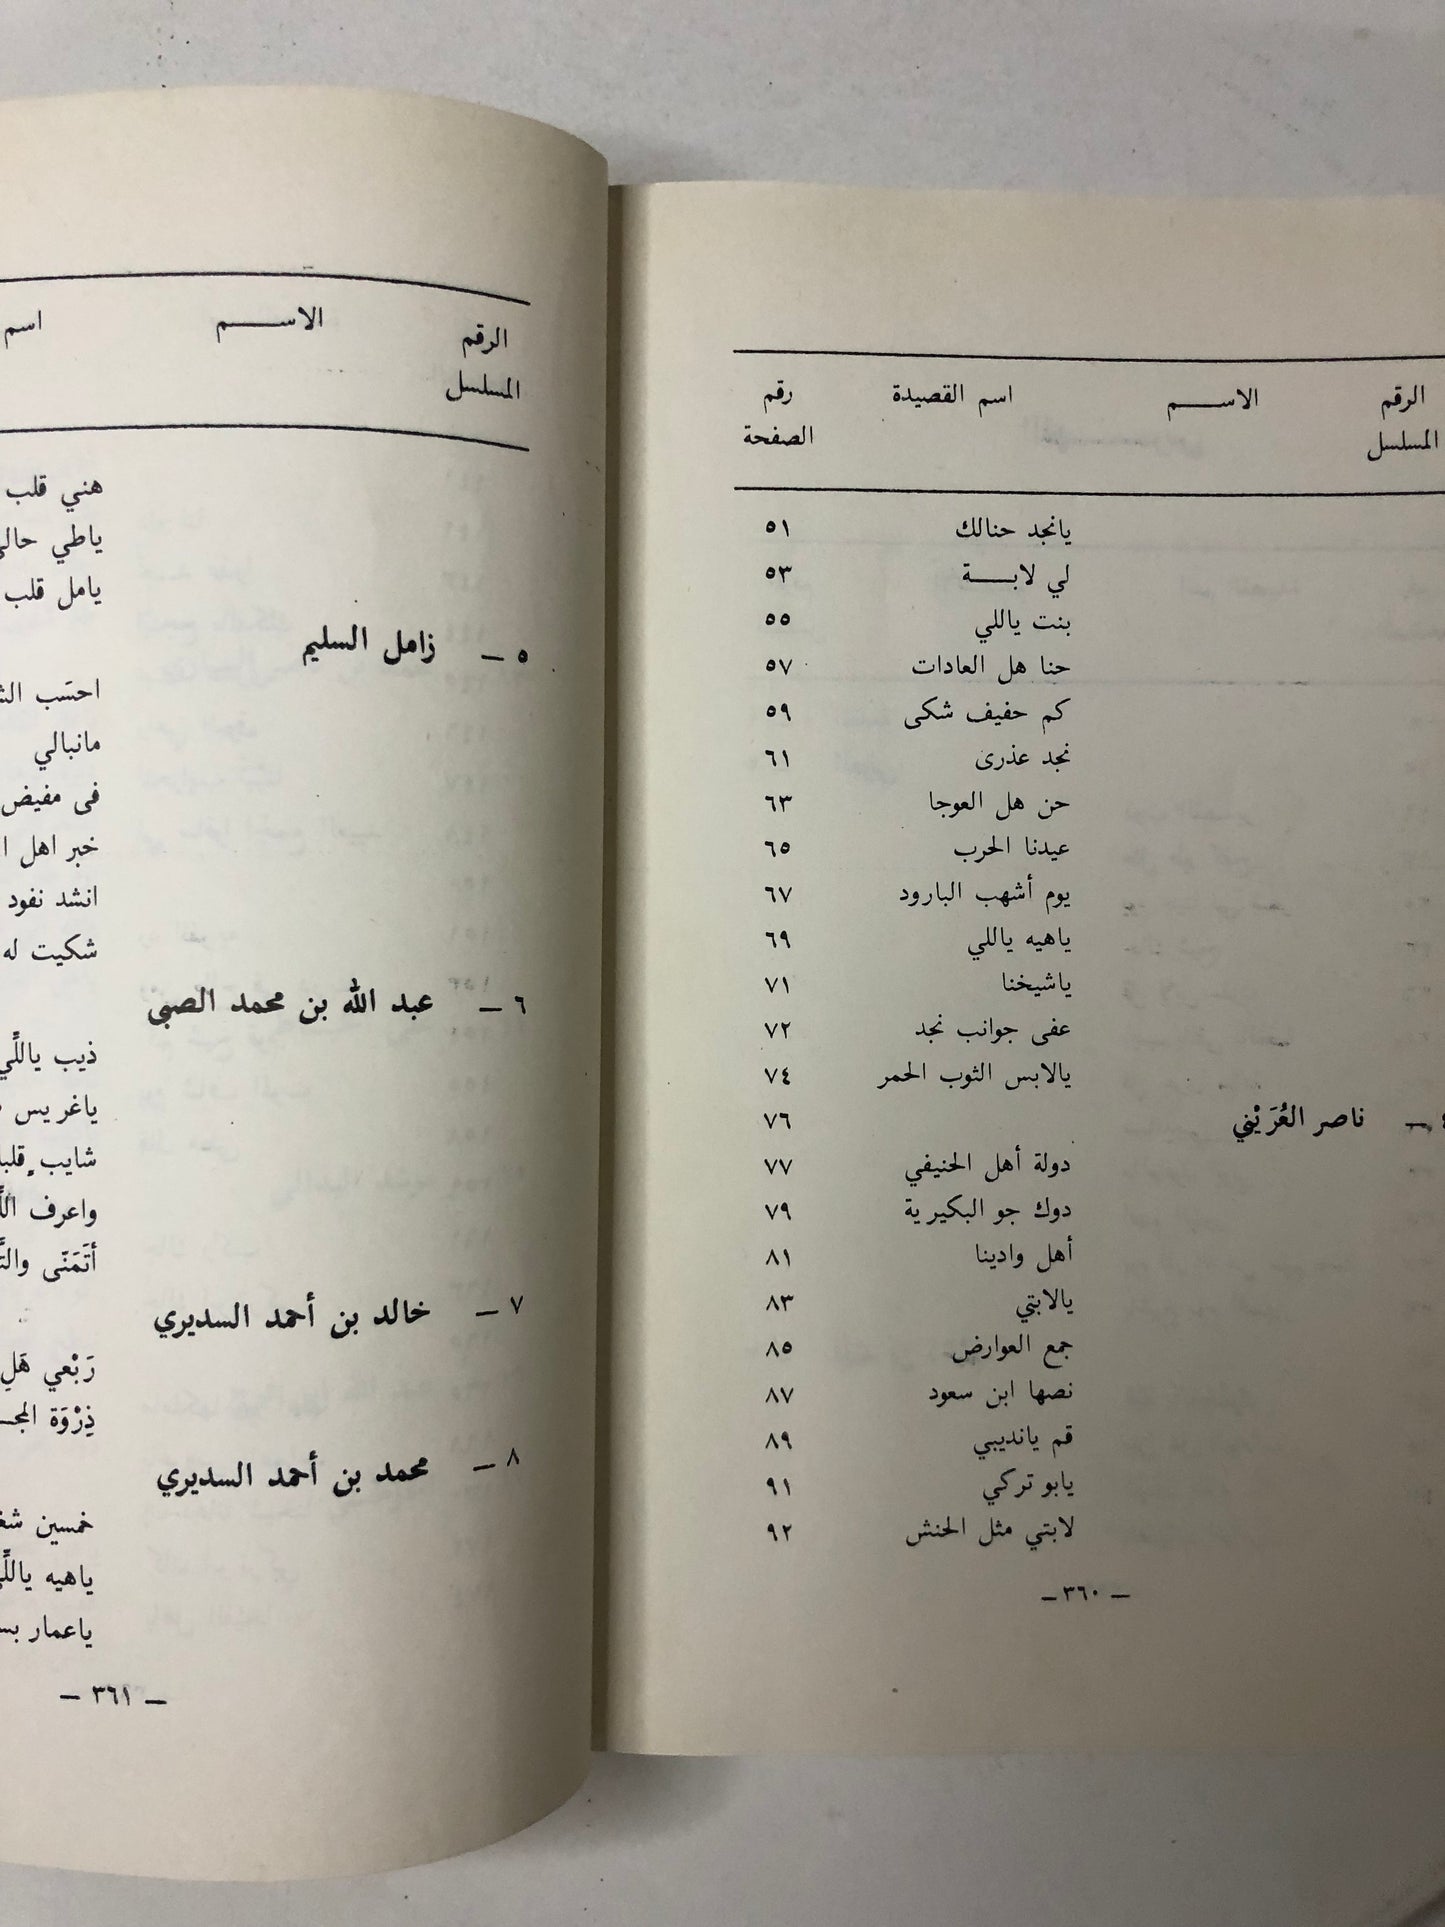 الرقم المسلسل الاســـم اسم القصيدة رقم الصفحة
يانجد حنالك ٥١
لي لابـــة ٥٣
بنت ياللي ٥٥
حنا هل العادات ٥٧
كم حفيف شكى ٥٩
نجد عذرى ٦١
حن هل العوجا ٦٣
عيدنا الحرب ٦٥
يوم أشهب البارود ٦٧
ياهيه ياللي ٦٩
ياشيخنا ٧١
عفى جوانب نجد ٧٢
يالابس الثوب الحمر ٧٤
٤ ــ ناصر العُرَيْني ٧٦
دولة أهل الحنيفي ٧٧
دوك جو البكيرية ٧٩
أهل وادينا ٨١
يالابتي ٨٣
جمع العوارض ٨٥
نصها ابن سعود ٨٧
قم يانديبي ٨٩
يابو تركي ٩١
لابتي مثل الحنش ٩٢
ــ ٣٦٠ ــ
الرقم المسلسل الاســـم اسم
هني قلب
ياطي
يامل قلب
٥ ــ زامل السليم
احسَب
مانبالي
فى مفيض
خبر اهل
انشد نفود
شكيت له
٦ ــ عبد الله بن محمد الصبى
ذيب ياللِّي
ياغريس
شايب
واعرف
أتَمَنّى
٧ ــ خالد بن أحمد السديري
رَبْعي هَلِ
ذِرْوَة
٨ ــ محمد بن أحمد السديري
خمسين
ياهيه
ياعمار
ــ ٣٦١ ــ